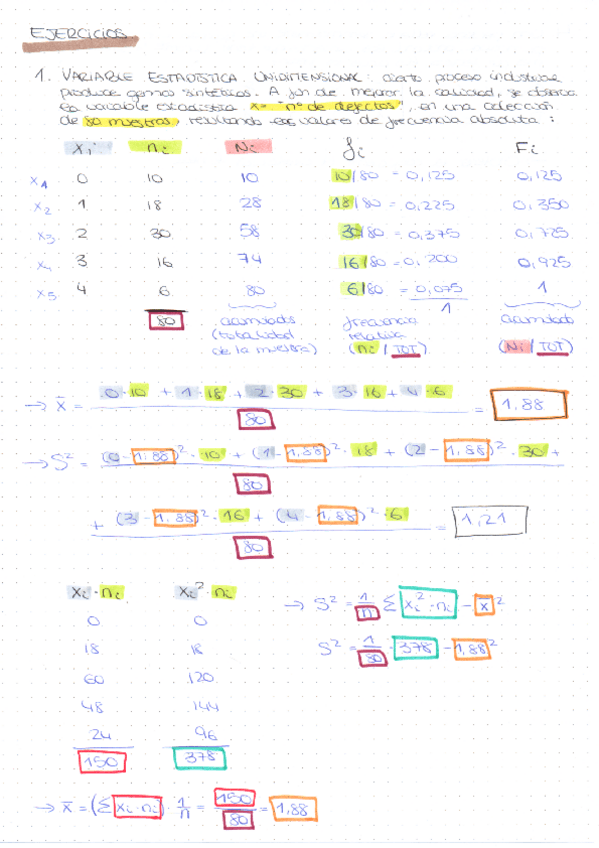 EJERCICIOS
1. VARIABLE ESTADÍSTICA UNIDIMENSIONAL: cierto proceso industrial
produce gomas sintéticas. A fin de mejorar la calidad, se observa
la variable estadística X = "nº de defectos", en una colección
de 80 muestras, resultando los valores de frecuencia absoluta:
xi ni Ni fi Fi
x1 0 10 10 10/80 = 0,125 0,125
x2 1 18 28 18/80 = 0,225 0,350
x3 2 30 58 30/80 = 0,375 0,725
3 16 74 16/80 = 0,200 0,925
x5 4 6 80 6/80 = 0,075 1
80 1
acumulada frecuencia acumulada
(totalidad relativa
de la muestra) (ni / TOT) (Ni / TOT)
→ x̄ = (0·10 + 1·18 + 2·30 + 3·16 + 4·6) / 80 = 1,88
→ S² = ((0 - 1,88)²·10 + (1 - 1,88)²·18 + (2 - 1,88)²·30 +) / 80
(+ (3 - 1,88)²·16 + (4 - 1,88)²·6) / 80 = 1,21
xi·ni xi²·ni → S² = 1/n Σ xi²·ni - x̄²
0 0
18 18 S² = 1/80 · 378 - 1,88²
60 120
48 144
24 96
150 378
→ x̄ = (Σ xi·ni) · 1/n = 150/80 = 1,88